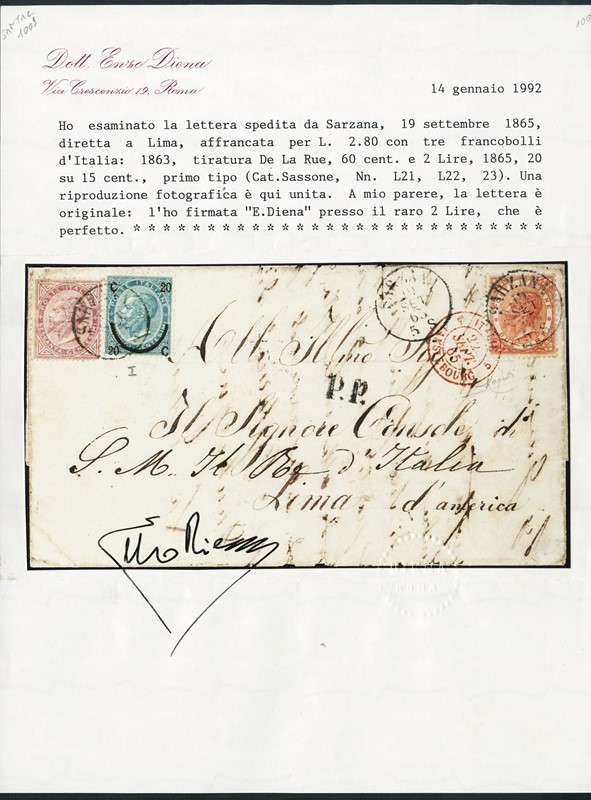 Dott. Enzo Diena
Via Crescenzio 19, Roma
14 gennaio 1992
Ho esaminato la lettera spedita da Sarzana, 19 settembre 1865,
diretta a Lima, affrancata per L. 2.80 con tre francobolli
d'Italia: 1863, tiratura De La Rue, 60 cent. e 2 Lire, 1865, 20
su 15 cent., primo tipo (Cat.Sassone, Nn. L21, L22, 23). Una
riproduzione fotografica è qui unita. A mio parere, la lettera è
originale: l'ho firmata "E.Diena" presso il raro 2 Lire, che è
perfetto. * * * * * * * * * * * * * * * * * * * * * * * * * * * *
C 20
20 C
I
SARZANA
P.P.
Il Signore Console di
S. M. Il Re d'Italia
Lima d'america